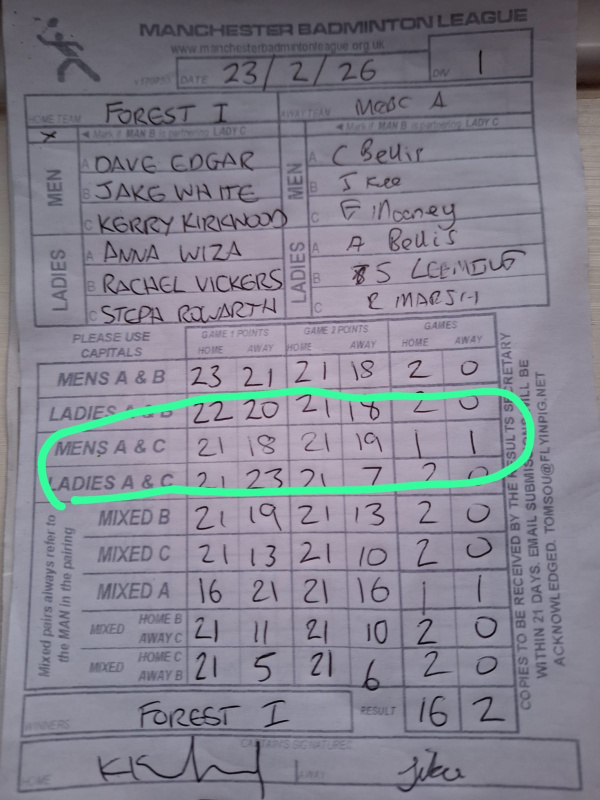 MANCHESTER BADMINTON LEAGUE
www.manchesterbadmintonleague.org.uk
DATE 23/2/26 DIV 1
HOME TEAM FOREST I AWAY TEAM MCBC A
X ◄ Mark if MAN B is partnering LADY C ◄ Mark if MAN B is partnering LADY C
MEN A DAVE EDGAR MEN A C Bellis
B JAKE WHITE B J Kee
C KERRY KIRKWOOD C F Mooney
LADIES A ANNA WIZA LADIES A A Bellis
B RACHEL VICKERS B S LEEMING
C STEPH ROWARTH C R MARSH
PLEASE USE CAPITALS GAME 1 POINTS GAME 2 POINTS GAMES
HOME AWAY HOME AWAY HOME AWAY
MENS A & B 23 21 21 18 2 0
LADIES A & B 22 20 21 18 2 0
MENS A & C 21 18 21 19 1 1
LADIES A & C 21 23 21 7 2 0
MIXED B 21 19 21 13 2 0
MIXED C 21 13 21 10 2 0
MIXED A 16 21 21 16 1 1
MIXED HOME B AWAY C 21 11 21 10 2 0
MIXED HOME C AWAY B 21 5 21 6 2 0
Mixed pairs always refer to
the MAN in the pairing
COPIES TO BE RECEIVED BY THE RESULTS SECRETARY
WITHIN 21 DAYS. EMAIL SUBMISSIONS WILL BE
ACKNOWLEDGED. TOMSOU@FLYINPIG.NET
WINNERS FOREST I RESULT 16 2
CAPTAINS SIGNATURES
HOME AWAY